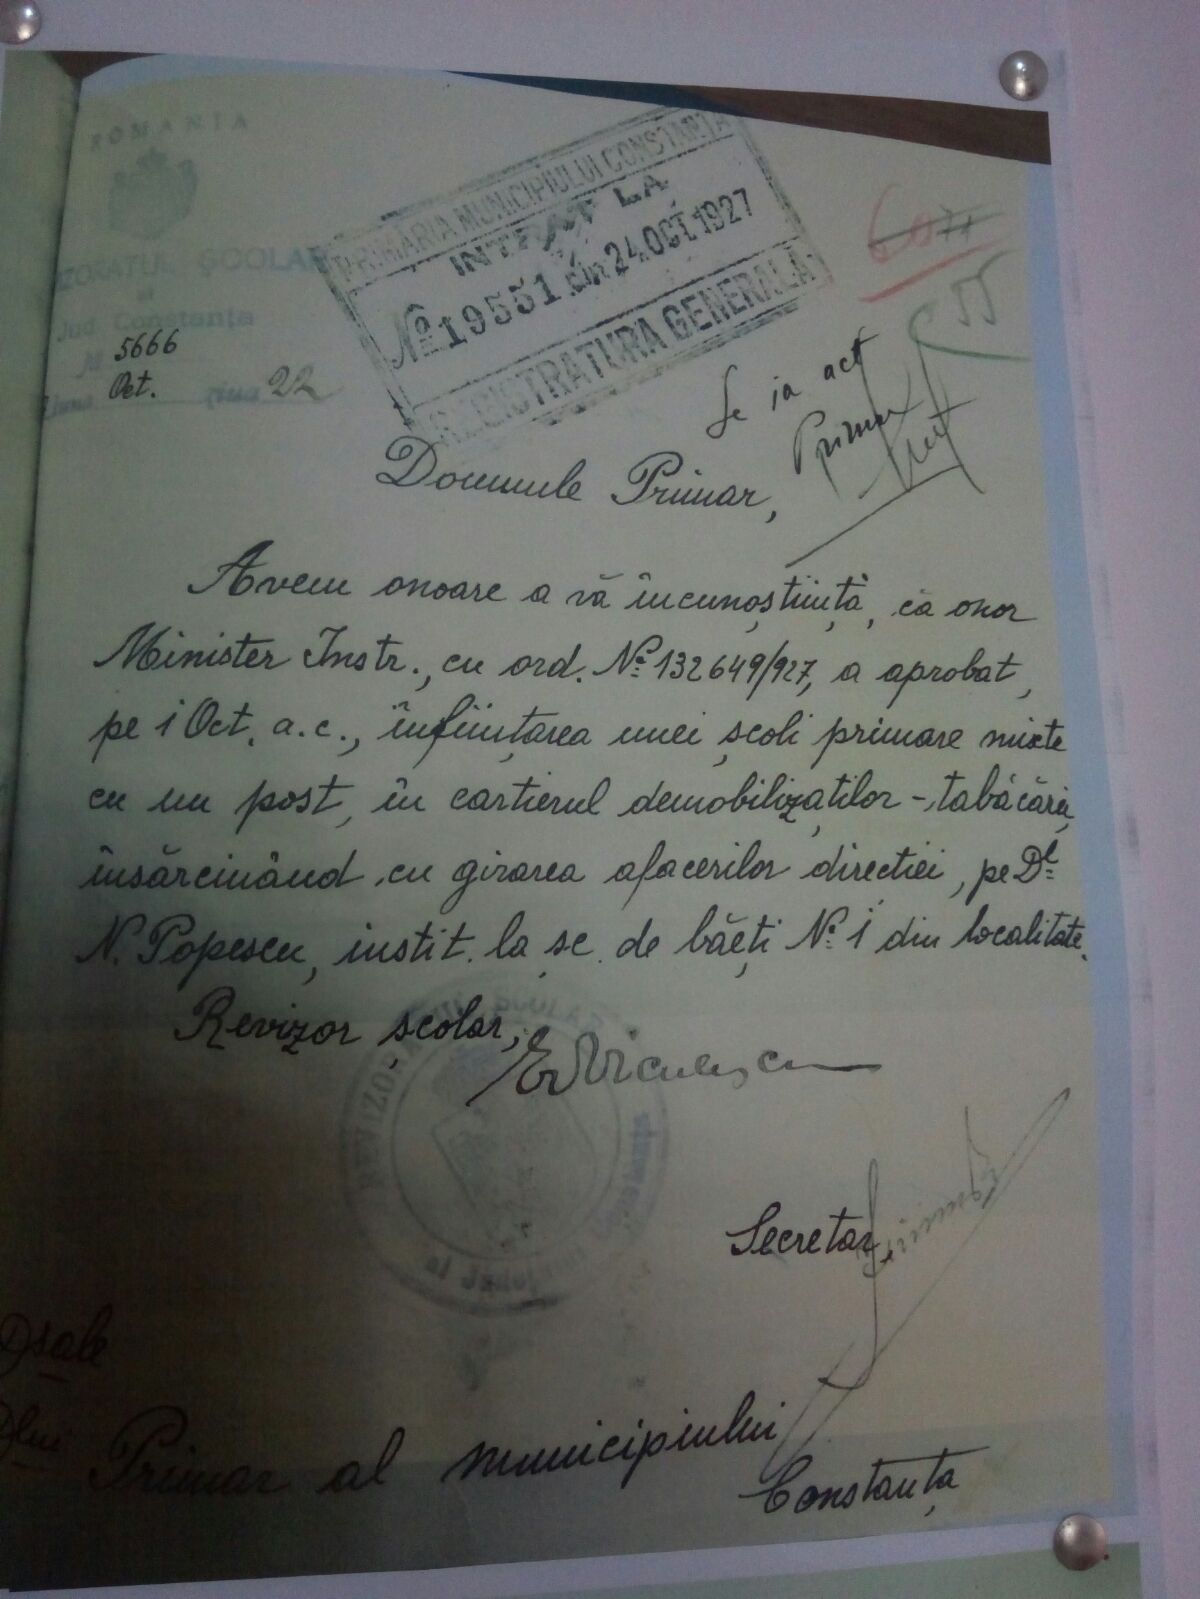 ROMANIA
ȘCOLAR
Jud Constanța
N 5666
Luna Oct. ziua 22
PRIMĂRIA MUNICIPIULUI CONSTANȚA
INTRAT LA
No 19551 din 24 OCT 1927
REGISTRATURA GENERALĂ
Se ia act
Primar
Domnule Primar,
Avem onoare a vă încunoștiința, că onor
Minister Instr., cu ord. No 132649/927, a aprobat,
pe 1 Oct. a.c., înființarea unei școli primare mixte
cu un post, în cartierul demobilizaților-tabăcărie,
însărcinând cu girarea afacerilor direcției, pe Dl
N. Popescu, instit. la șc. de băeți No 1 din localitate.
Revizor școlar,
Secretar,
Dsale
Dlui Primar al municipiului
Constanța